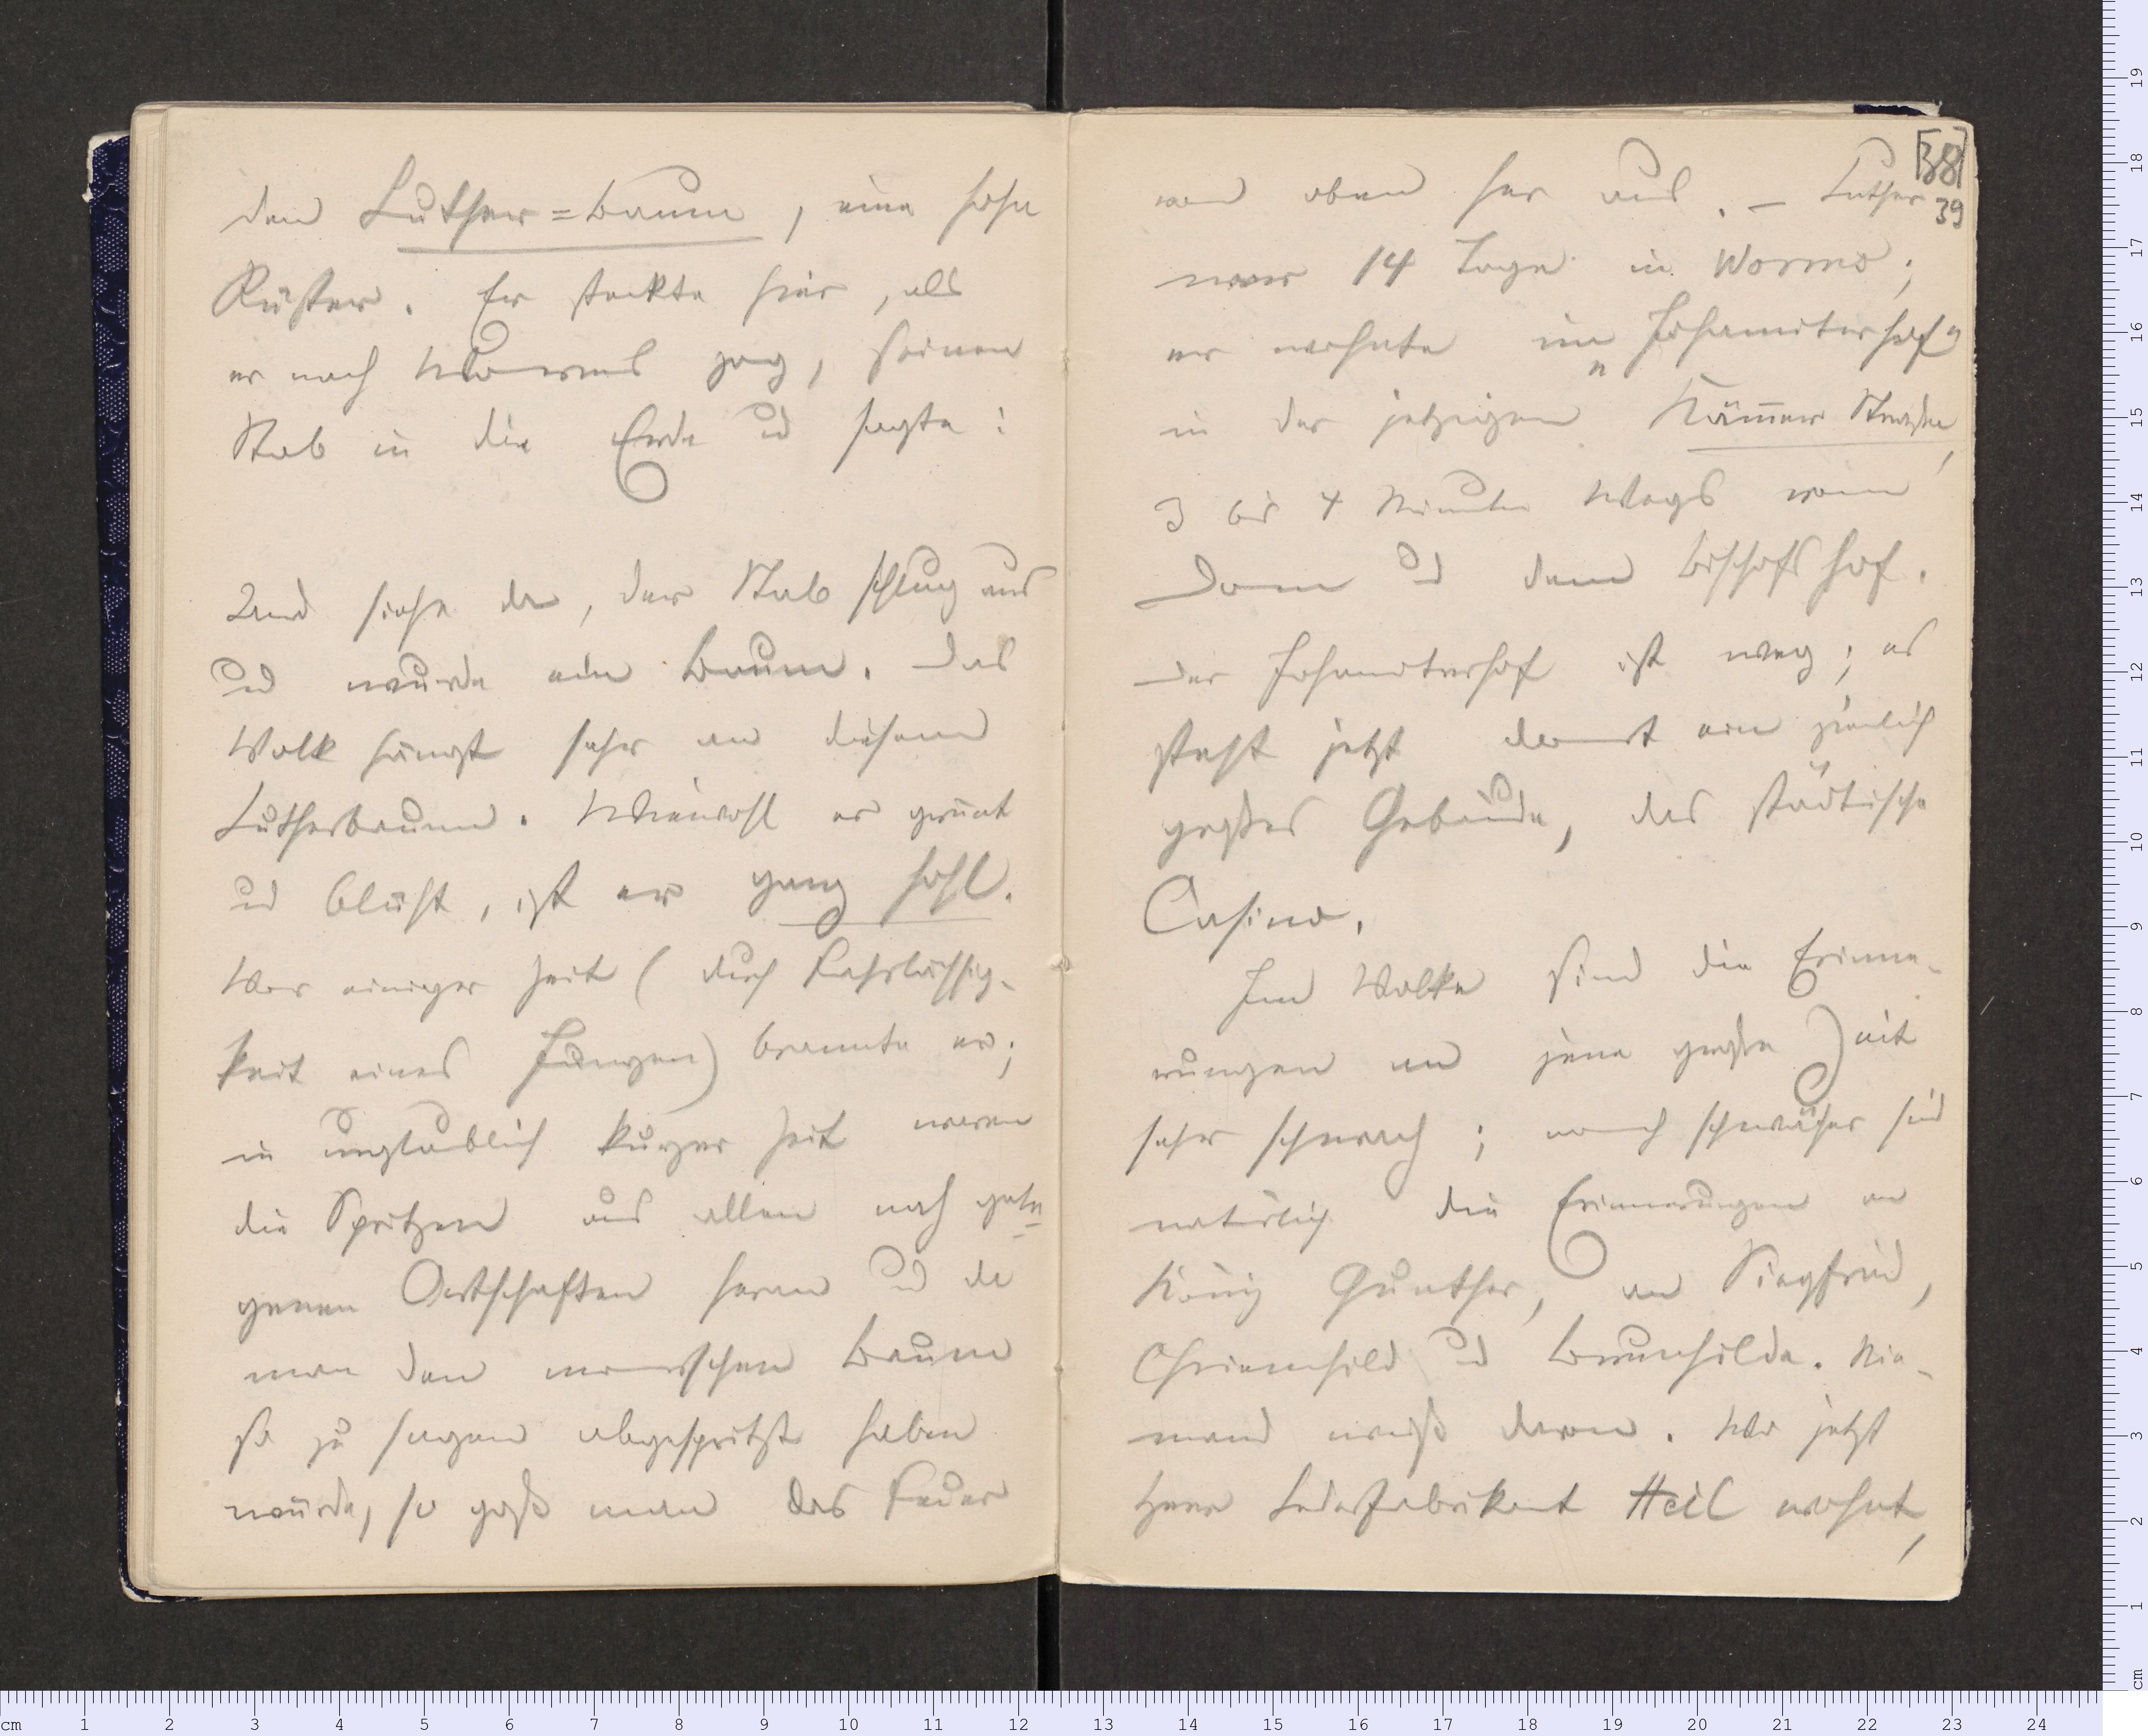 den Luther=Baum, eine hohe
Rüster. Er steckte hier, als
er nach Worms zog, seinen
Stab in die Erde u sagte:
Und siehe da, der Stab schlug aus
ud wurde ein Baum. Das
Volk hängt sehr an diesem
Lutherbaum. Wiewohl er grünt
ud blüht, ist er ganz hohl.
Vor einiger Zeit (durch Fahrlässig-
keit eines Jungen) brannte er;
in unglaublich kurzer Zeit waren
die Spritzen aus allen nah gele-
genen Ortschaften heran ud da
man den morschen Baum
so zu sagen abgespritzt haben
würde, so goß man das Feuer
[38]
39
von oben her aus. – Luther
war 14 Tage in Worms;
er wohnte im „Johanniterhof“
in der jetzigen Kämer Straße,
3 bis 4 Minuten Wegs vom
Dom ud dem Bischofshof.
Der Johanniterhof ist weg; es
steht jetzt dort ein ziemlich
großes Gebäude, das städtische
Casino.
Im Volke sind die Erinne-
rungen an jene große Zeit
sehr schwach; noch schwächer sind
natürlich die Erinnerungen an
König Gunther, an Siegfried,
Chriemhild ud Brunhilde. Nie-
mand weiß davon. Wo jetzt
Herr Lederfabrikant Heil wohnt,